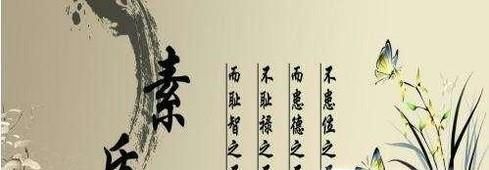 不患位之
而患德之
不耻禄之
而耻智之
素